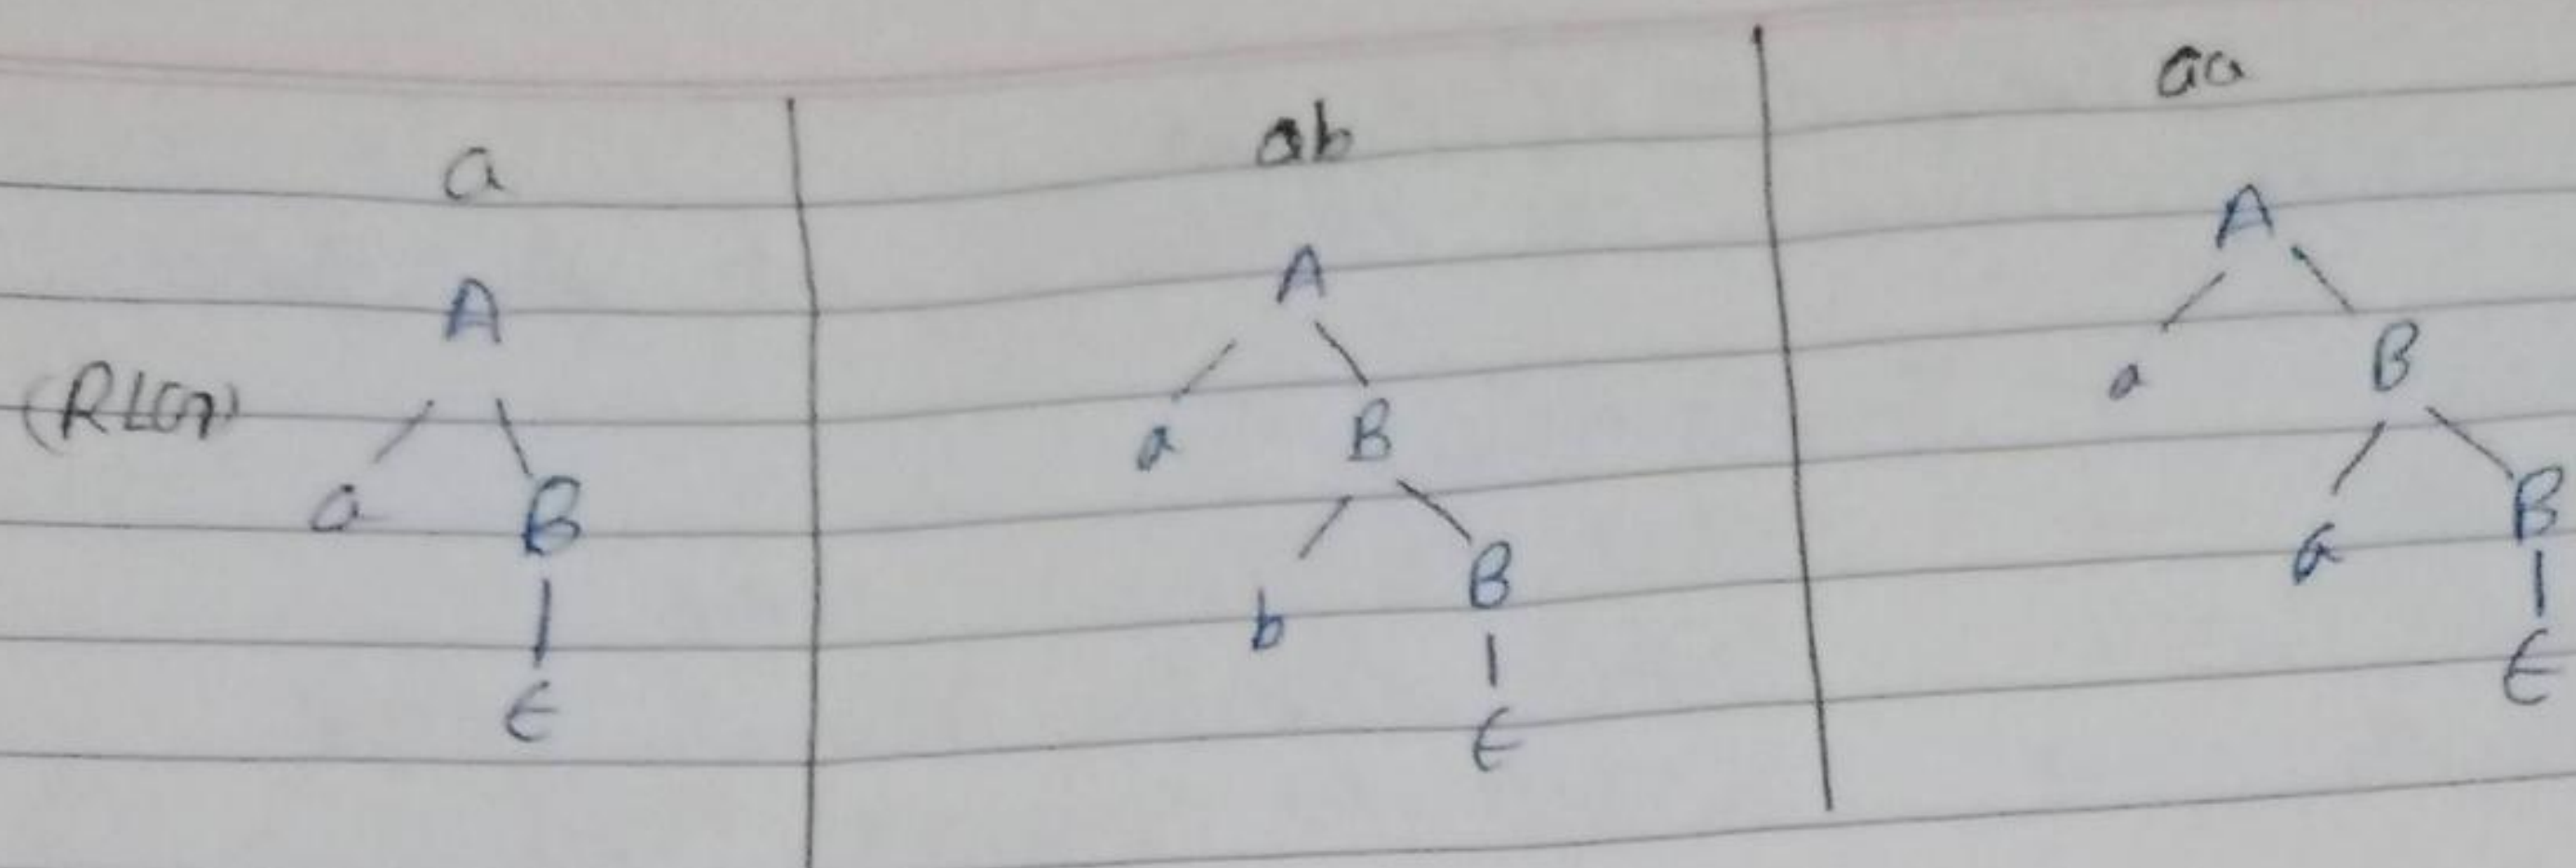 a
A
(RLG)
a B
ϵ
ab
A
a B
b B
ϵ
aa
A
a B
a B
ϵ